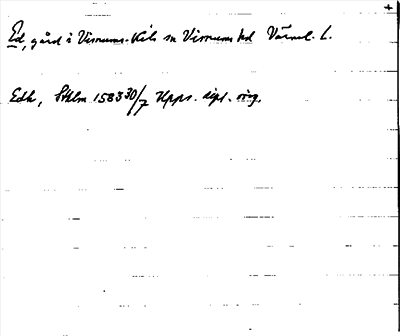 Ed, gård i Visnums-Kils sn Visnums hd Värml. l.
Edh, Sthlm 1583 30/7 Upps. dipl. orig.